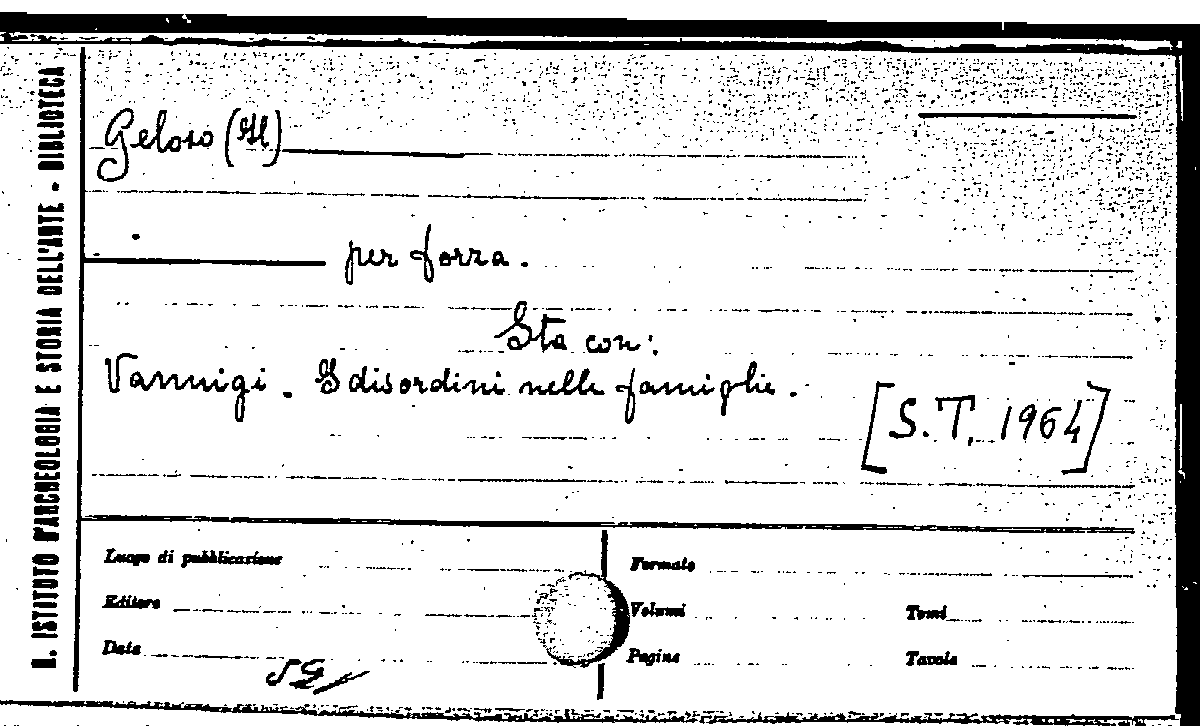 R. ISTITUTO D'ARCHEOLOGIA E STORIA DELL'ARTE - BIBLIOTECA
Geloso (Il)
per forza.
Sta con:
Vannigi. I disordini nelle famiglie.
[S.T. 1964]
Luogo di pubblicazione
Editore
Data
Formato
Volumi
Tomi
Pagine
Tavole